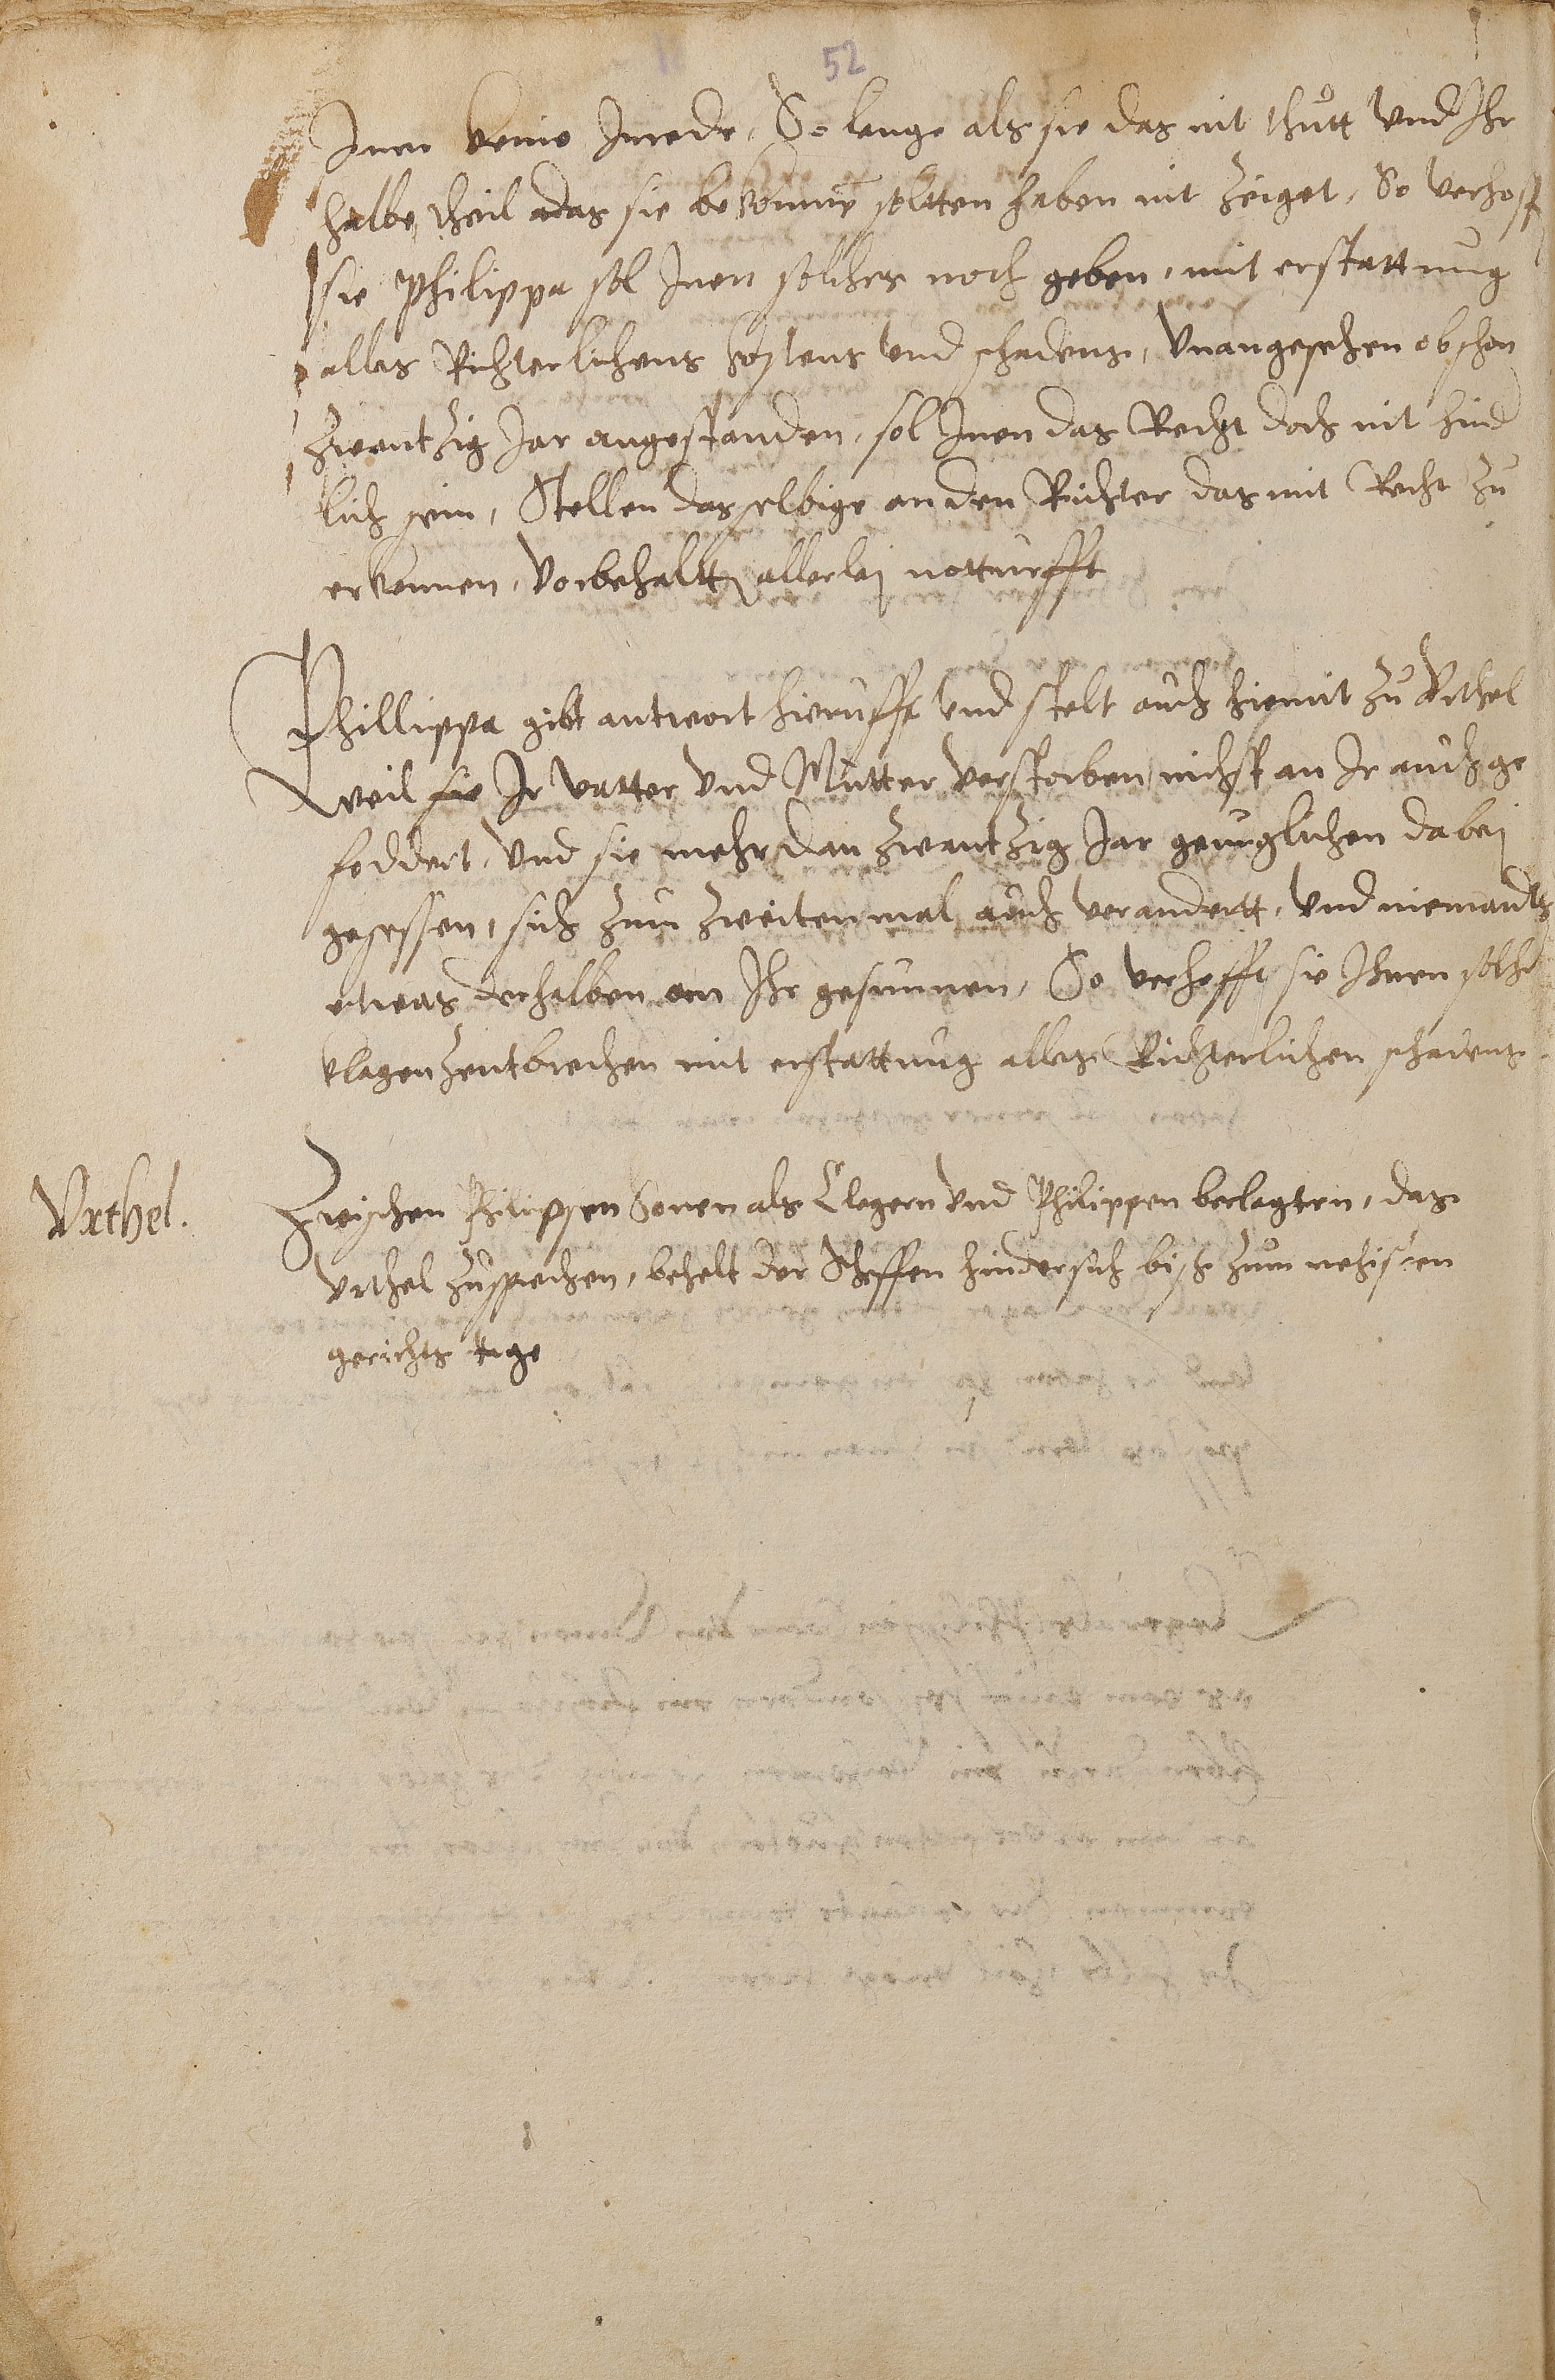 52
Inen keine Inrede, So lange als sie das nit thutt Vnd Ihr
halbe theil das sie bekommen soltten haben nit zeiget, So verhoff
sie Philippa sol Inen solches noch geben, mit erstattnug
alles Richterlichens Costens Vnd schadens, Vnangesehen obschon
Zwentzig Jar angestanden, sol Inen das Recht doch nit hind
lich sein, Stellen dasselbige an den Richter das mit Recht zu
erkennen, Vorbehaltt allerlej notturfft
Phillippa gibt antwort hierufft Vnd stelt auch hiemit zu Vrthel
weil sie Ir Vatter Vnd Mutter Verstorben, nichst an Ir auch ge
foddert, Vnd sie mehr dan Zwantzig Jar geruglichen dabej
gesessen, sich zum zweiten mal auch verandertt, Vnd niemandts
etwas derhalben an Ihr gesunnen, So Verhofft sie Ihnen solche
klagen zentbrechen mit erstattnug alles Richterlichen schadens.
Vrthel.
Zwischen Philipsen Sonen als Clegern Vnd Philippen beclagten, das
Vrthel zusprechen, behelt der Scheffen hindersich biss zum nehisten
gerichts tage